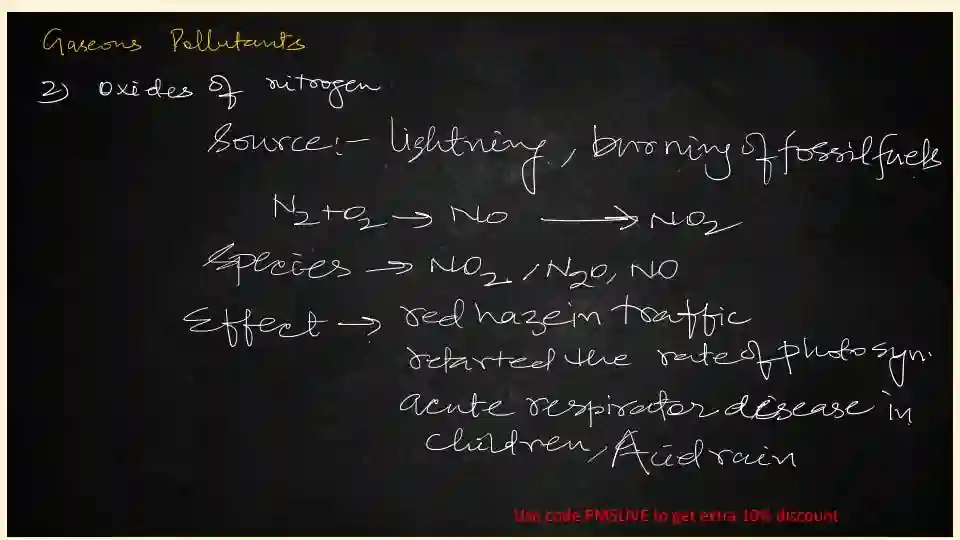 Gaseous Pollutants
2) Oxides of nitrogen
Source:- lightning, burning of fossil fuels
N2+O2 → NO → NO2
Species → NO2, N2O, NO
Effect → red haze in traffic
retarted the rate of photosyn.
acute respirator disease in
children, Acid rain
Use code PMSLIVE to get extra 10% discount